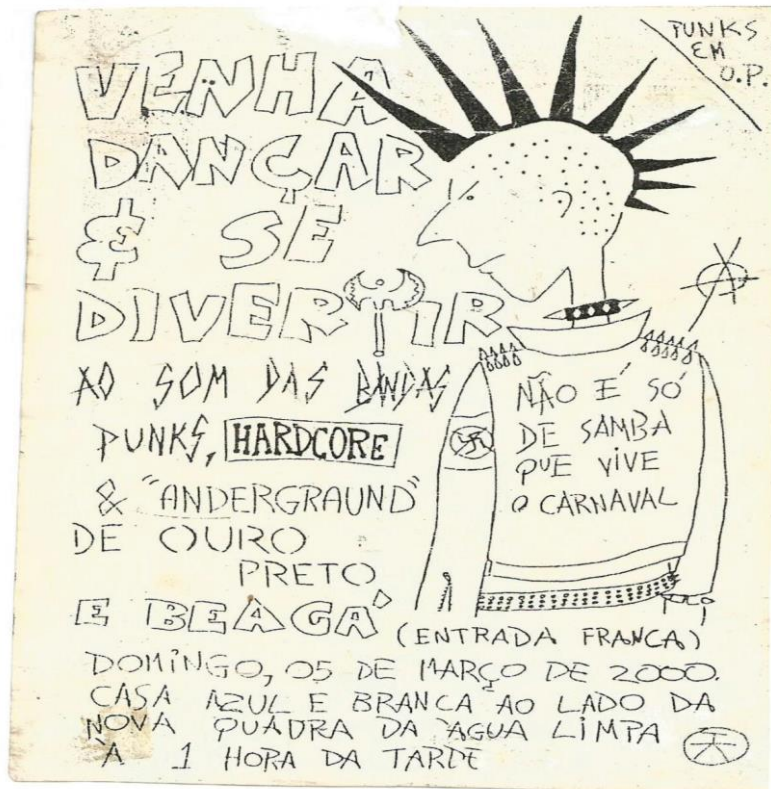 PUNKS
EM
O.P.
VENHA
DANÇAR
& SE
DIVERTIR
AO SOM DAS BANDAS
PUNKS, HARDCORE
& "ANDERGRAUND"
DE OURO
PRETO
E BEAGÁ
NÃO É SÓ
DE SAMBA
QUE VIVE
O CARNAVAL
(ENTRADA FRANCA)
DOMINGO, 05 DE MARÇO DE 2000.
CASA AZUL E BRANCA AO LADO DA
NOVA QUADRA DA ÁGUA LIMPA
À 1 HORA DA TARDE